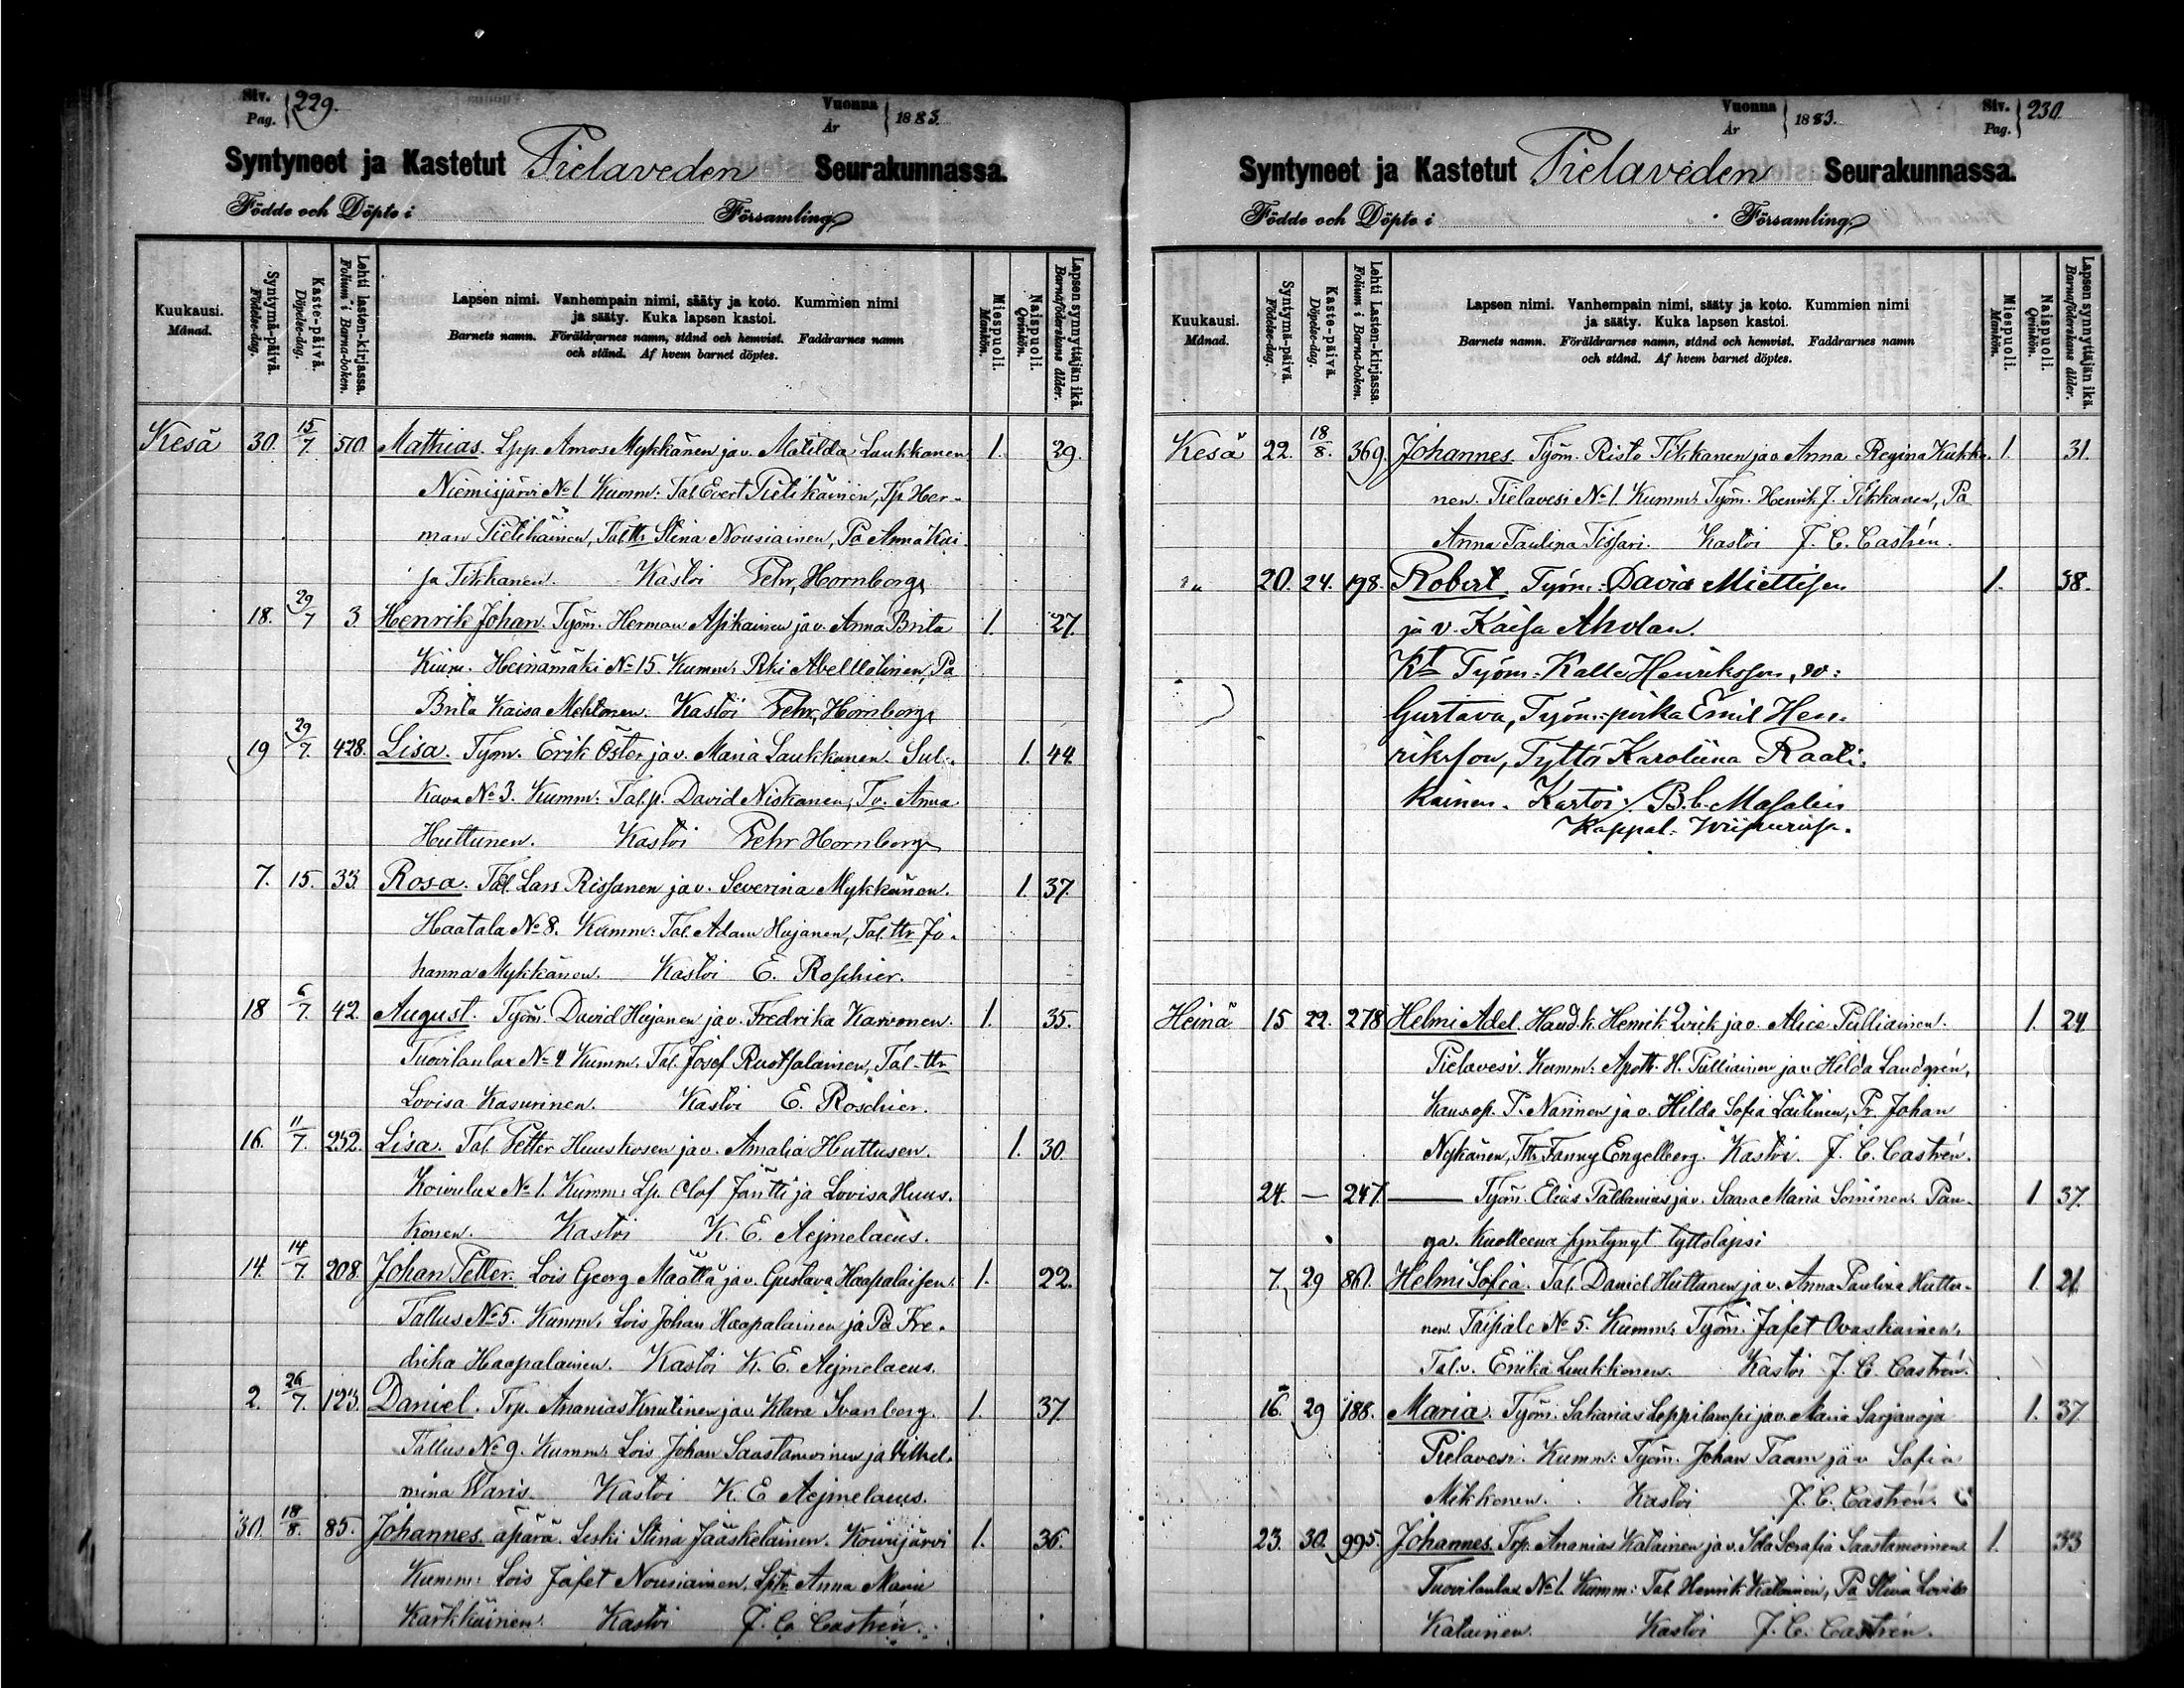 Siv. Pag. 229. Vuonna År 1883.
Syntyneet ja Kastetut Pielaveden Seurakunnassa.
Födde och Döpte i Församling.
Kuukausi. Månad.
Syntymä-päivä. Födelse-dag.
Kaste-päivä. Döpelse-dag.
Lehti lasten-kirjassa. Folium i Barna-boken.
Lapsen nimi. Vanhempain nimi, sääty ja koto. Kummien nimi
ja sääty. Kuka lapsen kastoi.
Barnets namn. Föräldrarnes namn, stånd och hemvist. Faddrarnes namn
och stånd. Af hvem barnet döptes.
Miespuoli. Mankön.
Naispuoli. Qvinkön.
Lapsen synnyttäjän ikä. Barnaföderskans ålder.
Kesä 30. 15/7 510. Mathias. Lpp Amos Mykkänen ja v. Matilda Laukkanen 1. 29.
Niemisjärvi No 1. Kumm: Tal Evert Pietikäinen, Tp Her-
man Pietikäinen, Tal ttr Stina Nousiainen, Pa Anna Kai-
sa Tikkanen. Kastoi Pehr Hornborg
18. 29/7 3 Henrik Johan. Työm. Herman Asikainen ja v. Anna Brita 1. 27.
Heinämäki No 15. Kumm: Abel Pa
Brita Kaisa Mehtonen. Kastoi Pehr Hornborg
19 29/7. 428. Lisa. Työm. Erik Öster ja v. Maria Laukkanen. Sul-
kava No 3. Kumm: Tal.p. David Niskanen, Tv. Anna 1. 44.
Huttunen. Kastoi Pehr Hornborg
7. 15. 33. Rosa. Tal. Lars Rissanen ja v. Severina Mykkänen. 1. 37.
Haatala No 8. Kumm: Tal. Adam Hujanen, Tal. ttr Jo-
hanna Mykkänen. Kastoi E. Roschier.
18 6/7. 42. August. Työm. David Hujanen ja v. Fredrika Karvonen. 1. 35.
Tuovilanlax No 4 Kumm: Tal. Josef Ruotsalainen, Tal-ttr
Lovisa Kasurinen. Kastoi E. Roschier.
16. 11/7. 252. Lisa. Tal. Petter Huuskosen ja v. Amalia Huttusen. 1. 30.
Koivulax No 1. Kumm: Lp. Olof Jäntti ja Lovisa Huus-
konen. Kastoi K. E. Aejmelaeus.
14. 14/7. 208. Johan Petter. Lois Georg Määttä ja v. Gustava Haapalaisen. 1. 22.
Tallus No 5. Kumm: Lois Johan Haapalainen ja Pa Fre-
drika Haapalainen. Kastoi K. E. Aejmelaeus.
2. 26/7. 123. Daniel. Trp. Ananias Knutinen ja v. Klara Svanberg. 1. 37
Tallus No 9. Kumm: Lois Johan Saastamoinen ja Vilhel-
mina Waris. Kastoi K. E Aejmelaeus.
30. 18/8. 85. Johannes. äpärä. Leski Stina Jääskeläinen. Koivujärvi 1. 36.
Kumm: Lois Jafet Nousiainen, Anna Maria
Karkkainen. Kastoi J. C. Castrén.
Vuonna År 1883. Siv. Pag. 230.
Syntyneet ja Kastetut Pielaveden Seurakunnassa.
Födde och Döpte i Församling.
Kuukausi. Månad.
Syntymä-päivä. Födelse-dag.
Kaste-päivä. Döpelse-dag.
Lehti Lasten-kirjassa. Folium i Barna-boken.
Lapsen nimi. Vanhempain nimi, sääty ja koto. Kummien nimi
ja sääty. Kuka lapsen kastoi.
Barnets namn. Föräldrarnes namn, stånd och hemvist. Faddrarnes namn
och stånd. Af hvem barnet döptes.
Miespuoli. Mankön.
Naispuoli. Qvinkön.
Lapsen synnyttäjän ikä. Barnaföderskans ålder.
Kesä 22. 18/8. 369. Johannes. Työm. Risto Tikkanen ja v. Anna Regina Kukko- 1. 31.
nen. Pielavesi No 1. Kumm: Työm. Henrik J. Tikkanen, Pa
Anna Paulina Tissari. Kastoi J. C. Castrén.
" 20. 24. 198. Robert. Työm. David Miettisen 1. 38.
ja v. Kaisa Aholan.
Kt Työm: Kalle Henriksson, w:
Gustava, Työm:poika Emil Hen-
riksson, Tyttö Karoliina Raati-
kainen. Kastoi B. b. Masalin
Kappal. Wiipurissa.
Heinä 15 22. 278 Helmi Adel. Haud.k. Henrik Qvick ja v. Alice Pulliainen. 1. 24
Pielavesi. Kumm: Apoth. H. Pulliainen ja v. Hilda Landgrén,
Kans.op. P. Narinen ja v. Hilda Sofia Laitinen, Pr. Johan
Nykänen, Ttr Fanny Engelberg. Kastoi. J. C. Castrén.
24. — 247. — Työm. Elias Paldanius ja v. Saara Maria Soininen. Pan- 1 37.
ga. Kuolleena syntynyt tyttölapsi
7. 29 861. Helmi Sofia. Tal. Daniel Huttunen ja v. Anna Paulina Huttu- 1. 21.
nen. Taipale No 5. Kumm: Työm. Jafet Ovaskainen,
Tal.v. Erika Luukkonen. Kastoi J. C. Castrén.
16. 29 188. Maria. Työm. Sakarias Leppilampi ja v. Maria Sarjanoja 1. 37
Pielavesi. Kumm: Työm. Johan Taam ja v Sofia
Mikkonen. Kastoi J. C. Castrén.
23. 30. 995. Johannes. Trp. Ananias Katainen ja v. Ida Serafia Saastamoinen 1. 33
Tuovilanlax No 1. Kumm: Tal. Henrik Katainen, Pa Stina Lovisa
Katainen. Kastoi J. C. Castrén.